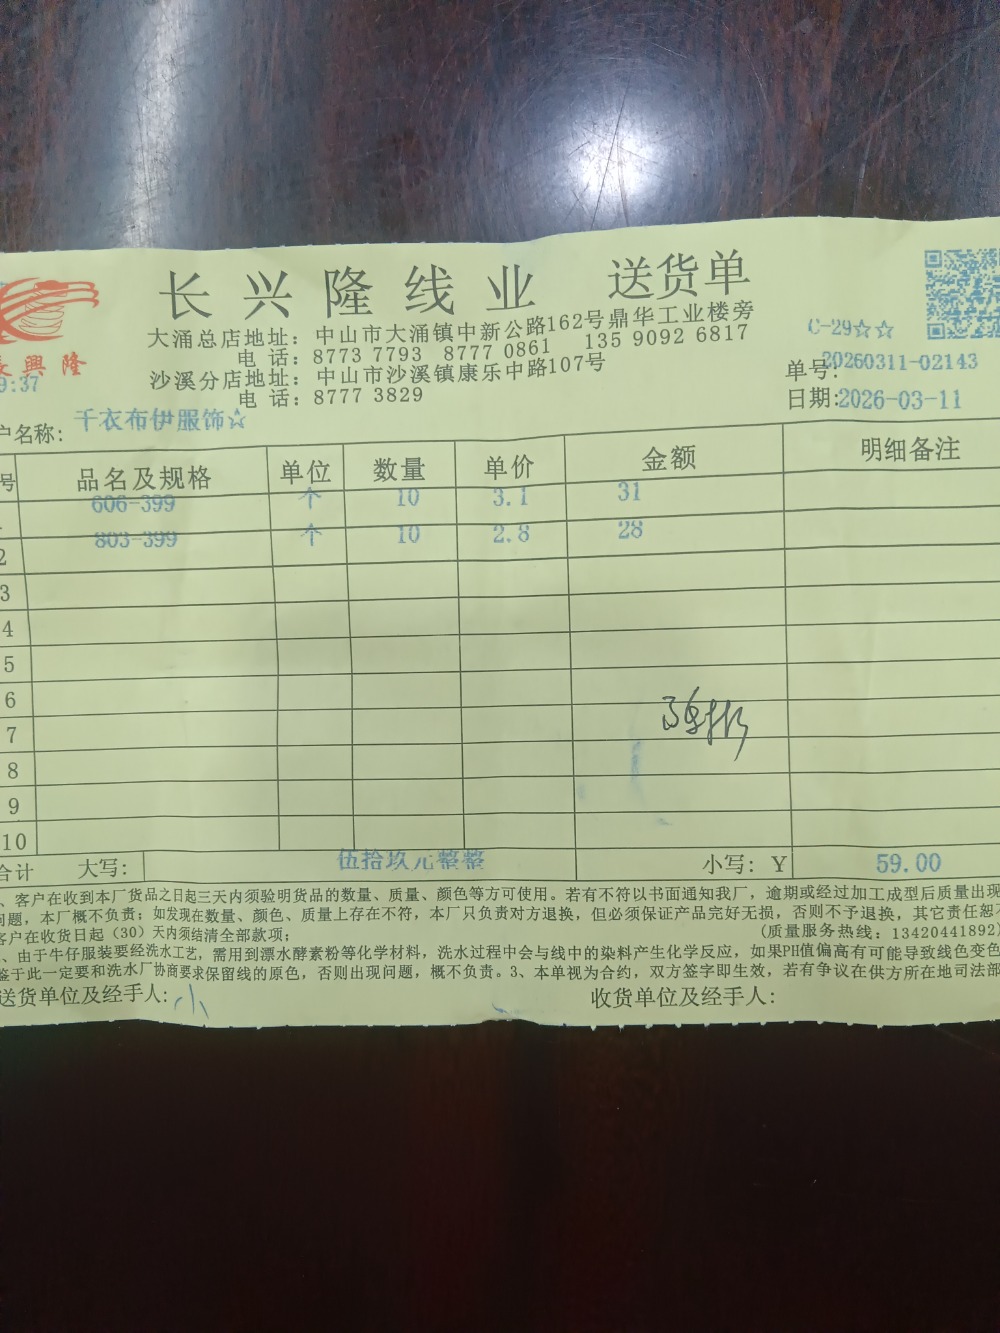 长兴隆线业 送货单
大涌总店地址：中山市大涌镇中新公路162号鼎华工业楼旁
电 话：8773 7793 8777 0861 135 9092 6817
沙溪分店地址：中山市沙溪镇康乐中路107号
电 话：8777 3829
興隆
9:37
C-29☆☆
单号:20260311-02143
日期:2026-03-11
户名称: 千衣布伊服饰☆
号 品名及规格 单位 数量 单价 金额 明细备注
606-399 个 10 3.1 31
2 803-399 个 10 2.8 28
3
4
5
6
7
8
9
10
合计 大写: 伍拾玖元整整 小写: Y 59.00
、客户在收到本厂货品之日起三天内须验明货品的数量、质量、颜色等方可使用。若有不符以书面通知我厂，逾期或经过加工成型后质量出现
问题，本厂概不负责；如发现在数量、颜色、质量上存在不符，本厂只负责对方退换，但必须保证产品完好无损，否则不予退换，其它责任恕不
客户在收货日起（30）天内须结清全部款项； (质量服务热线：13420441892)
、由于牛仔服装要经洗水工艺，需用到漂水酵素粉等化学材料，洗水过程中会与线中的染料产生化学反应，如果PH值偏高有可能导致线色变色
鉴于此一定要和洗水厂协商要求保留线的原色，否则出现问题，概不负责。3、本单视为合约，双方签字即生效，若有争议在供方所在地司法部
送货单位及经手人: 小 收货单位及经手人: